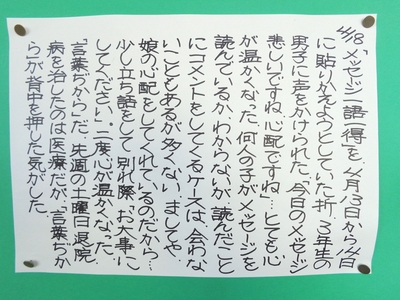 4/18「メッセージ一語一得」を、4月13日から14日
に貼りかえようとしていた折、3年生の
男子に声をかけられた。今日のメッセージ
悲しいですね。心配ですね」…とても心
が温かくなった。何人の子がメッセージを
読んでいるか、わからないが、読んだこと
にコメントをしてくるケースは、会わな
いこともあるが多くない。ましてや、
娘の心配をしてくれているのだから…
少し立ち話をして別れ際、「お大事に
してください」。二度心が温かくなった。
「言葉ぢから」だ。先週の土曜日退院
病を治したのは医療だが、「言葉ぢか
ら」が背中を押した気がした。